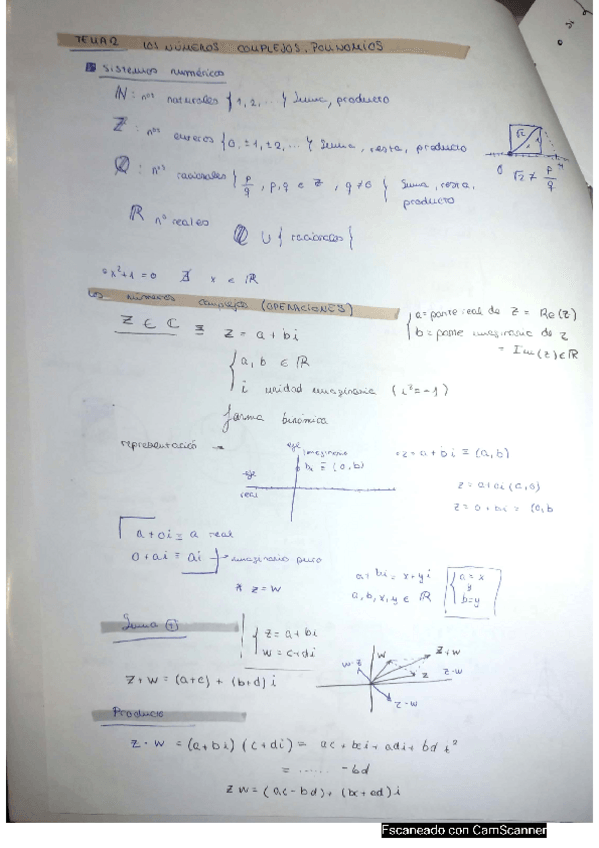 TEMA 2 LOS NÚMEROS COMPLEJOS. POLINOMIOS
Sistemas numéricos
ℕ: nos naturales {1,2,...} Suma, producto
ℤ: nos enteros {0, ±1, ±2, ...} Suma, resta, producto
ℚ: nos racionales {p/q, p,q ∈ ℤ, q≠0} Suma, resta, producto
√2 1
0 √2 ≠ p/q
ℝ nº reales
ℚ ∪ {racionales}
x²+1=0 ∄ x ∈ ℝ
Los números complejos (OPERACIONES)
Z ∈ ℂ ≡ z = a + bi
a = parte real de z = Re(z)
b = parte imaginaria de z = Im(z) ∈ ℝ
a, b ∈ ℝ
i unidad imaginaria (i²=-1)
forma binómica
representació
eje imaginario
bi ≡ (0,b)
eje real
z = a+bi ≡ (a,b)
z = a+0i (a,0)
z = 0 + ai = (0,b
a+0i = a real
0+ai = ai imaginario puro
* z=w
a+bi = x+yi
a,b,x,y ∈ ℝ
a=x
y
b=y
Suma ⊕
z = a+bi
w = c+di
z+w = (a+c) + (b+d) i
w-z w z+w
z z-w
z-w
Producto
z · w = (a+bi) (c+di) = ac + bci + adi + bd i²
= ...... -bd
z w = (ac-bd) + (bc+ad) i
Escaneado con CamScanner